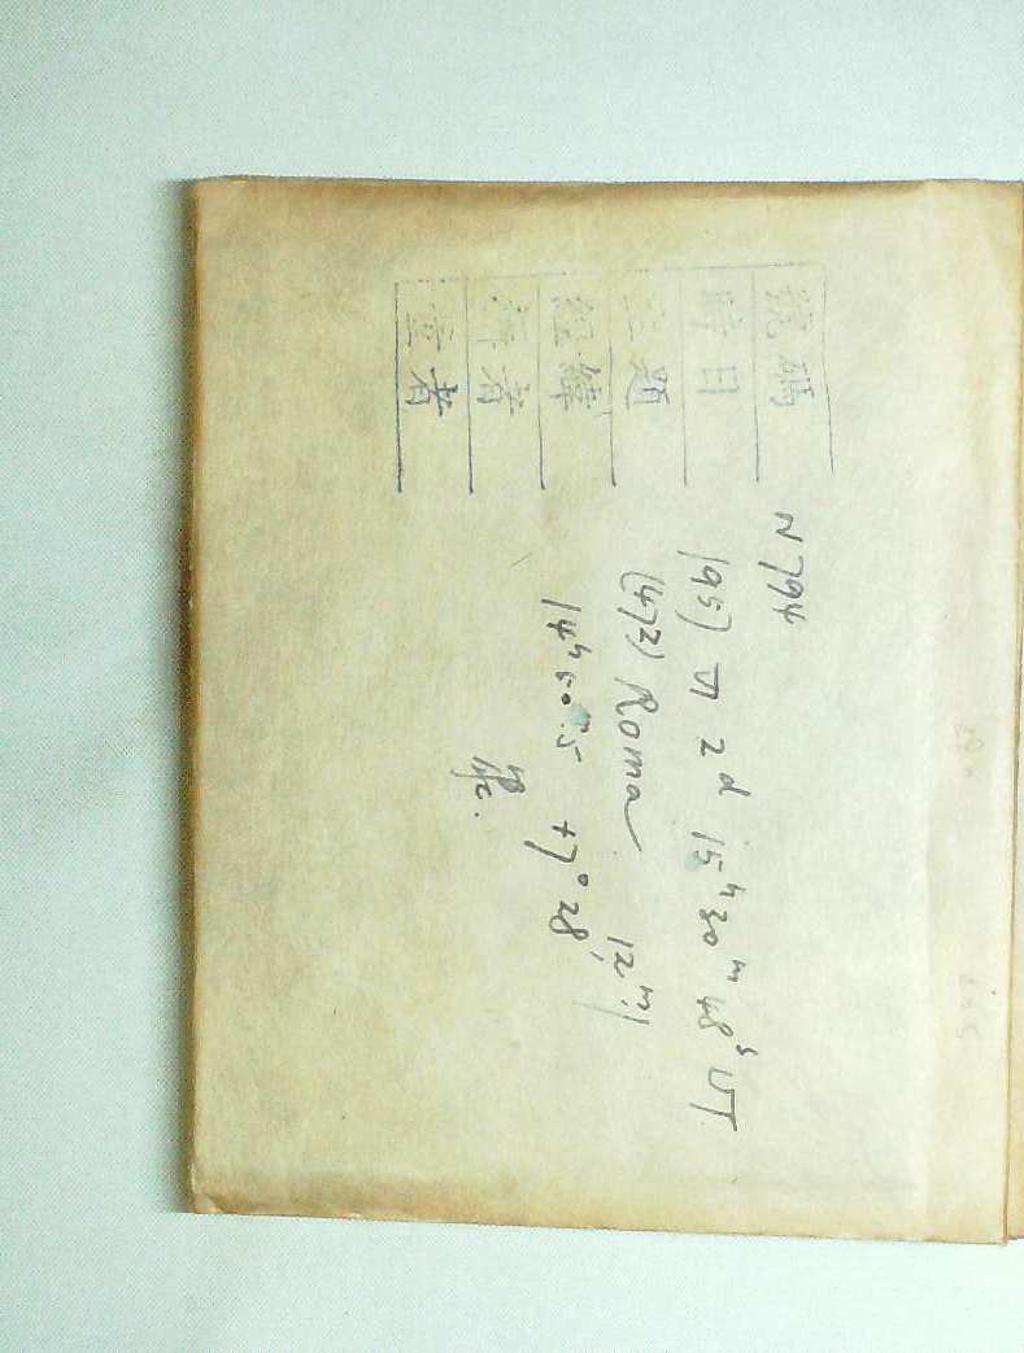 號碼 N 794
時日 1951 VI 2d 15h 30m 48s UT
主題 (472) Roma 12m.1
經緯 14h 50m.5 +7° 28'
評者
量者